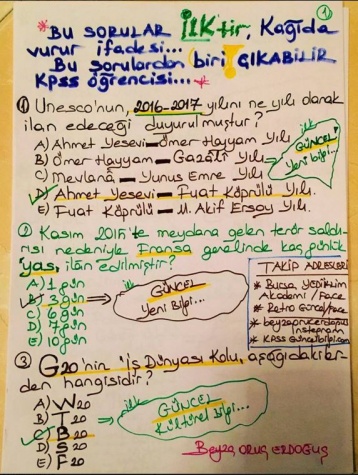 ①
*Bu SORULAR İLKtir, Kağıda
vurur ifadesi...
Bu sorulardan biri ÇIKABİLİR
KPSS öğrencisi...*
① Unesco'nun, 2016-2017 yılını ne yılı olarak
ilan edeceği duyurulmuştur?
A) Ahmet Yesevi-Ömer Hayyam Yılı
B) Ömer Hayyam-Gazâlî Yılı
C) Mevlânâ-Yunus Emre Yılı
D) Ahmet Yesevi-Fuat Köprülü Yılı.
E) Fuat Köprülü-M. Akif Ersoy Yılı.
ilk
GÜNCEL
Yeni bilgi...
② Kasım 2015'te meydana gelen terör saldı-
rısı nedeniyle Fransa genelinde kaç günlük
"yas, ilan edilmiştir?
A) 1 gün
B) 3 gün
C) 6 gün
D) 7 gün
E) 10 gün
ilk
GÜNCEL
Yeni Bilgi...
TAKİP ADRESLERİ
* Bursa YEDİİKLİM
Akademi/Face
* Retro Güncel/Face
* beyzaoruçerdoğus
Instagram
* KPSS Güncelbilgi.com
③ G20'nin "İş Dünyası Kolu, aşağıdakiler-
den hangisidir?
A) W20
B) T20
C) B20
D) S20
E) F20
ilk
GÜNCEL
Kültürel Bilgi...
Beyza ORUÇ ERDOĞUŞ